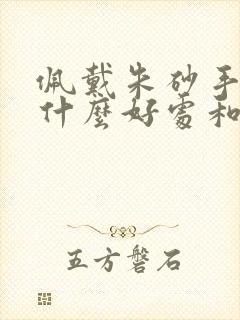 佩戴朱砂手
什麼好處和
五方磐石